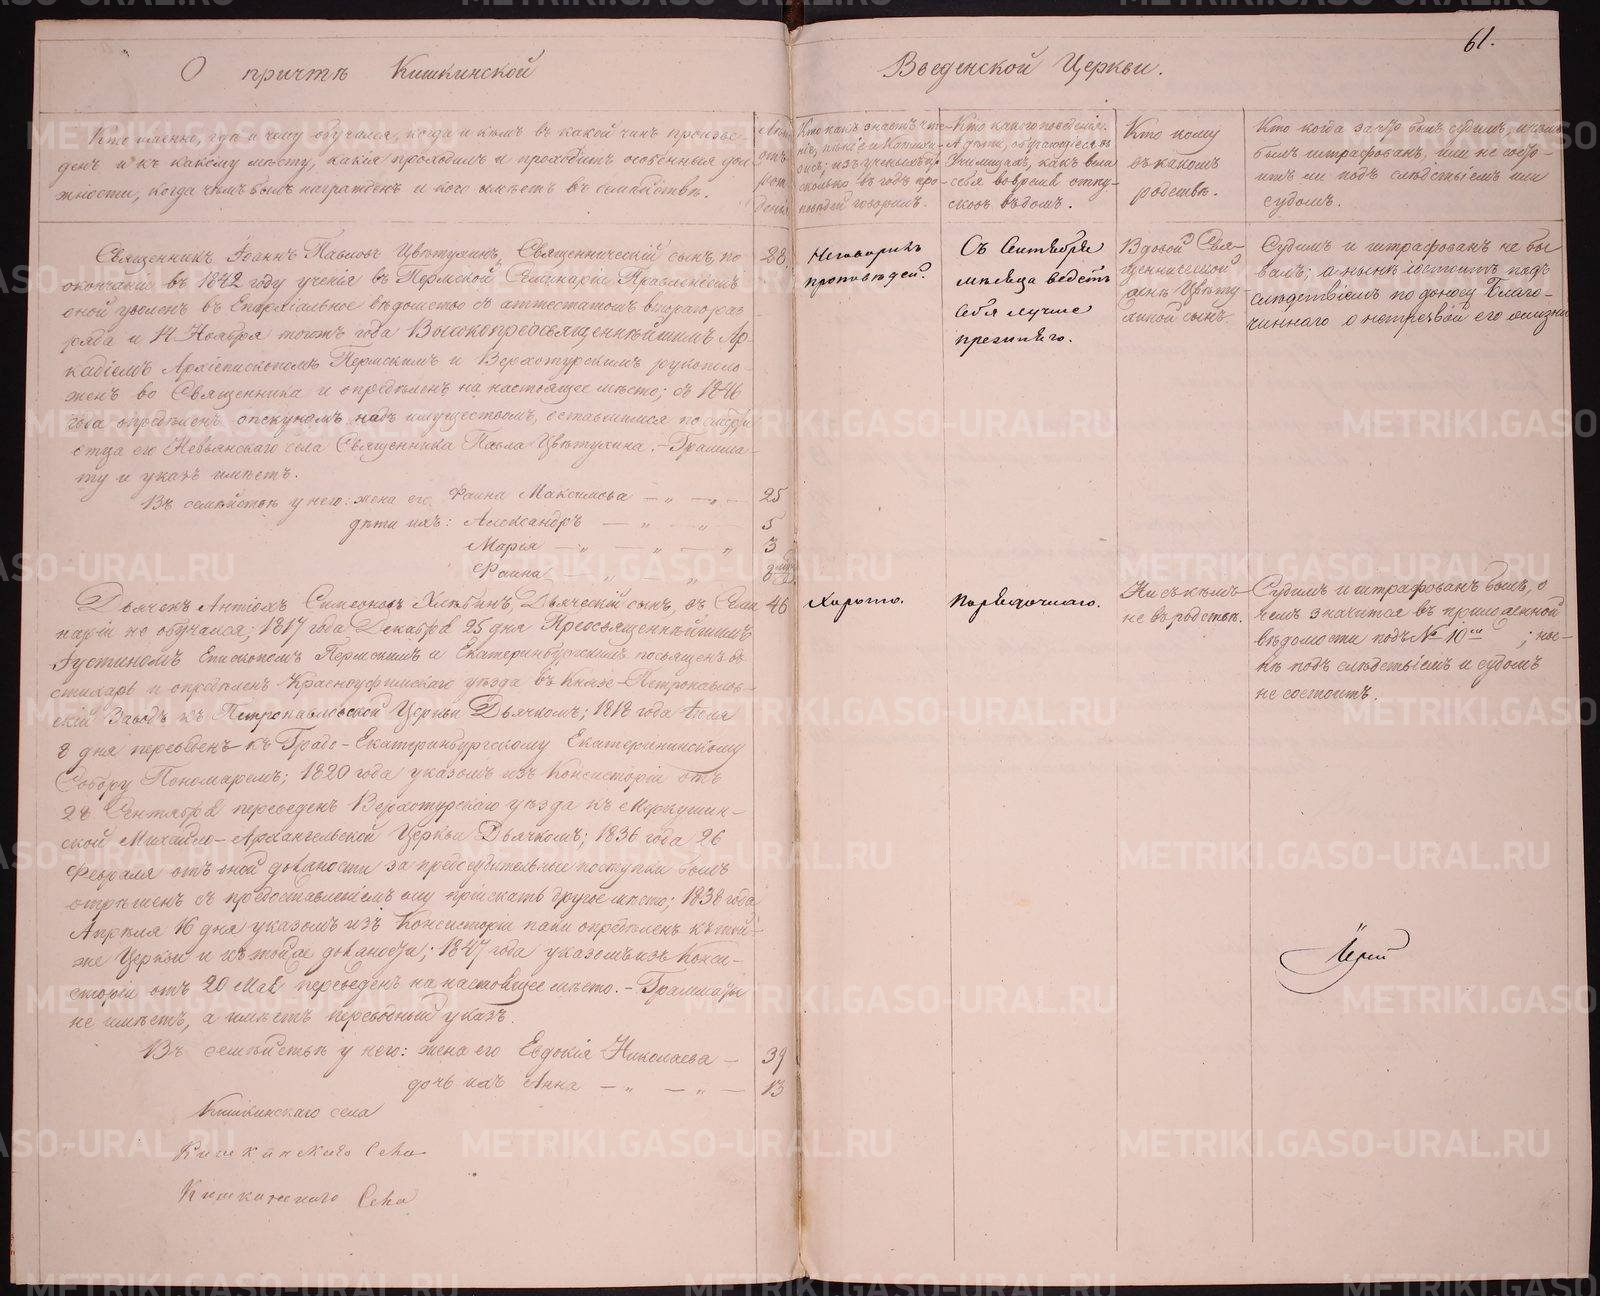 61.
О причтѣ Кишкинской Введенской Церкви.
Кто именно, гдѣ и чему обучался, когда и кѣмъ въ какой чинъ произве-
денъ и къ какому мѣсту, какія проходилъ и проходитъ особенныя дол-
жности, когда чѣмъ былъ награжденъ и кого имѣетъ въ семействѣ.
Лѣта
отъ
рож
денія
Кто какъ знаетъ чте-
ніе, пѣніе и Катихи-
зисъ; изъ ученыхъ
сколько въ годъ про-
повѣдей говорилъ.
Кто какого поведенія.
А дѣти, обучающіеся въ
Училищахъ, какъ вели
себя во время отпу-
сковъ въ домъ.
Кто кому
въ какомъ
родствѣ.
Кто когда за что былъ судимъ, и чѣмъ
былъ штрафованъ, или не состо-
итъ ли подъ слѣдствіемъ или
судомъ.
Священникъ Іоаннъ Павловъ Цвѣтухинъ, Священническій сынъ, по
окончаніи въ 1842 году ученія въ Пермской Семинаріи Правленіемъ
оной уволенъ въ Епархіальное вѣдомство съ аттестатомъ втораго раз-
ряда и 14 Ноября тогожъ года Высокопреосвященнѣйшимъ Ар-
кадіемъ Архіепископомъ Пермскимъ и Верхотурскимъ рукополо-
женъ во Священника и опредѣленъ на настоящее мѣсто; съ 1846
года опредѣленъ опекуномъ надъ имуществомъ, оставшимся по смерти
отца его Невьянскаго села Священника Павла Цвѣтухина. - Грамма-
ту и указъ имѣетъ.
28
Въ семействѣ у него: жена его Фаина Максимова — „ — „ — 25
дѣти ихъ: Александръ — „ — „ — 5
Марія — „ — „ — „ 3
Фаина — „ — „ 8 мѣс.
Неговорилъ
проповѣдей.
Съ Сентября
мѣсяца ведетъ
себя лучше
прежняго.
Вдовой Свя-
щеннической
женѣ Цвѣту-
хиной сынъ.
Судимъ и штрафованъ не бы
валъ; а нынѣ состоитъ подъ
слѣдствіемъ по доносу Благо-
чиннаго о нетрезвой его жизни
Дьячекъ Антіохъ Симеоновъ Хлѣбинъ, Дьяческій сынъ, въ Семи 46
наріи не обучался; 1817 года Декабря 25 дня Преосвященнѣйшимъ
Густиномъ Епископомъ Пермскимъ и Екатеринбургскимъ посвященъ въ
стихарь и опредѣленъ Красноуфимскаго уѣзда въ Князе-Петропавлов-
скій Заводъ къ Петропавловской Церкви Дьячкомъ; 1818 года Іюля
8 дня переведенъ къ Градо-Екатеринбургскому Екатерининскому
Собору Пономаремъ; 1820 года указомъ изъ Консисторіи отъ
28 Сентября переведенъ Верхотурскаго уѣзда къ Меркушин-
ской Михайло-Архангельской Церкви Дьячкомъ; 1836 года 26
Февраля отъ оной должности за предосудительные поступки былъ
отрѣшенъ съ предоставленіемъ ему пріискать другое мѣсто; 1838 года
Апрѣля 16 дня указомъ изъ Консисторіи паки опредѣленъ къ той-
же Церкви и къ тойже должности; 1847 года указомъ изъ Конси-
сторіи отъ 20 Мая переведенъ на настоящее мѣсто. - Грамматы
не имѣетъ, а имѣетъ переводный указъ.
Въ семействѣ у него: жена его Евдокія Николаева — 39
дочь ихъ Анна — „ — „ — 13
Хорошо.
Порядочнаго.
Ни съ кѣмъ
не въ родствѣ.
Судимъ и штрафованъ былъ, о
чемъ значится въ прошлогодней
вѣдомости подъ № 10мъ ; ны-
нѣ подъ слѣдствіемъ и судомъ
не состоитъ.
Іерей
Кишкинскаго села
Кишкинскаго Села
Кишкинскаго Села
METRIKI.GASO-URAL.RU